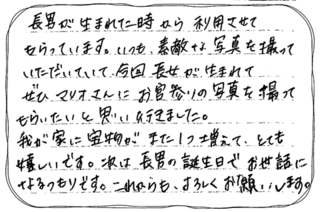 長男が生まれた時から利用させて
もらっています。いつも、素敵な写真を撮って
いただいていて、今回長女が生まれて
ぜひマリオさんにお宮参りの写真を撮って
もらいたいと思い行きました。
我が家に宝物がまた1つ増えて、とても
嬉しいです。次は長男の誕生日でお世話に
なるつもりです。これからも、よろしくお願いします。